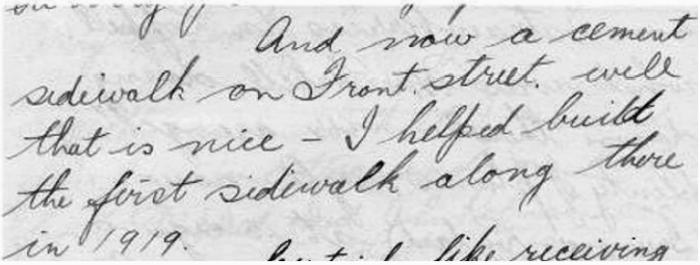 And now a cement
sidewalk on Front. street. well
that is nice - I helped build
the first sidewalk along there
in 1919.
like receiving